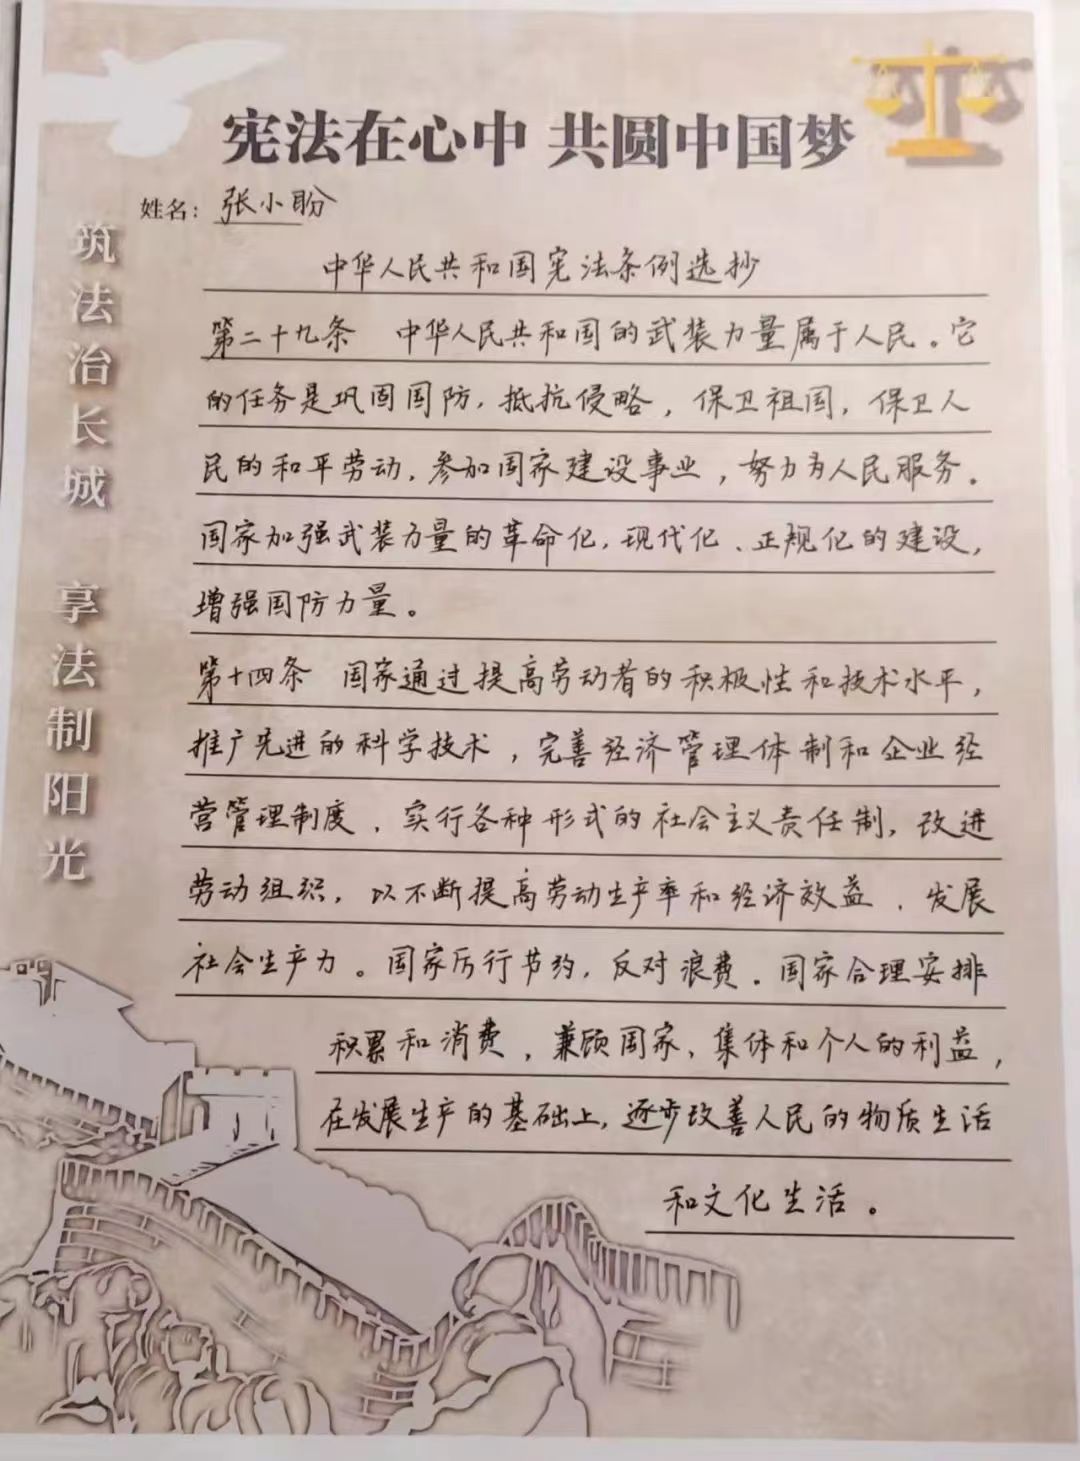 宪法在心中 共圆中国梦
姓名：张小盼
筑法治长城 享法制阳光
中华人民共和国宪法条例选抄
第二十九条 中华人民共和国的武装力量属于人民。它
的任务是巩固国防，抵抗侵略，保卫祖国，保卫人
民的和平劳动，参加国家建设事业，努力为人民服务。
国家加强武装力量的革命化，现代化、正规化的建设，
增强国防力量。
第十四条 国家通过提高劳动者的积极性和技术水平，
推广先进的科学技术，完善经济管理体制和企业经
营管理制度，实行各种形式的社会主义责任制，改进
劳动组织，以不断提高劳动生产率和经济效益，发展
社会生产力。国家厉行节约，反对浪费。国家合理安排
积累和消费，兼顾国家、集体和个人的利益，
在发展生产的基础上，逐步改善人民的物质生活
和文化生活。